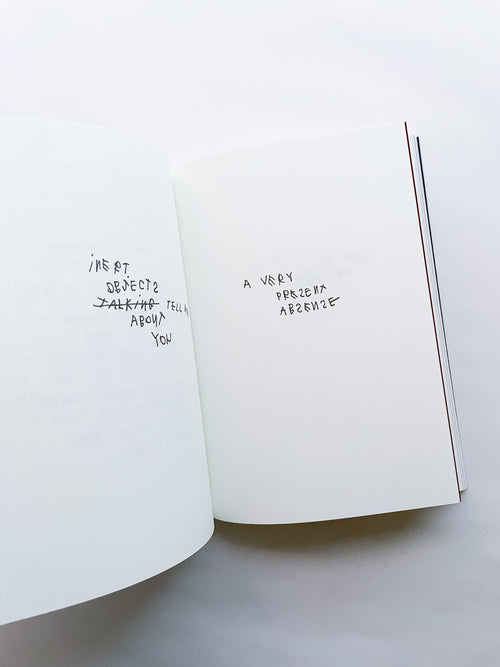 INERT
OBJECTS
TALKING TELL
ABOUT
YOU
A VERY
PRESENT
ABSENSE